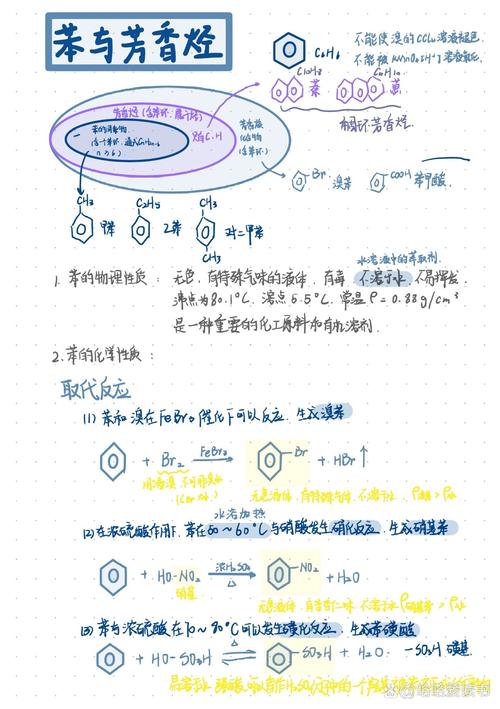 苯与芳香烃
C6H6
不能使溴的CCl4溶液褪色
不能被KMnO4(H+)溶液氧化
C10H8 萘
C14H10
稠环芳香烃
芳香烃(含苯环,
苯的同系物
(含一个苯环,通式CnH2n-6
n≥6)
只含C、H
芳香族
化合物
(含苯环)
Br 溴苯
COOH 苯甲酸
CH3 甲苯
C2H5 乙苯
CH3 CH3 对二甲苯
水溶液中的萃取剂
1. 苯的物理性质: 无色,有特殊气味的液体,有毒,不溶于水,易挥发
沸点为80.1℃,熔点5.5℃,常温ρ=0.88g/cm³
是一种重要的化工原料和有机溶剂.
2. 苯的化学性质:
取代反应
(1) 苯和溴在FeBr3催化下可以反应,生成溴苯
+ Br2 FeBr3 Br + HBr↑
用液溴,不可用溴水
无色液体,有特殊气味,不溶于水,ρ溴苯>ρ水
水浴加热
(2) 在浓硫酸作用下,苯在50~60℃与硝酸发生硝化反应,生成硝基苯
+ HO-NO2 浓H2SO4 △ NO2 + H2O
硝基
无色液体,有苦杏仁味,不溶于水,ρ硝基苯>ρ水
(3) 苯与浓硫酸在70~80℃可以发生磺化反应,生成苯磺酸
+ HO-SO3H △ SO3H + H2O -SO3H 磺基
易溶于水